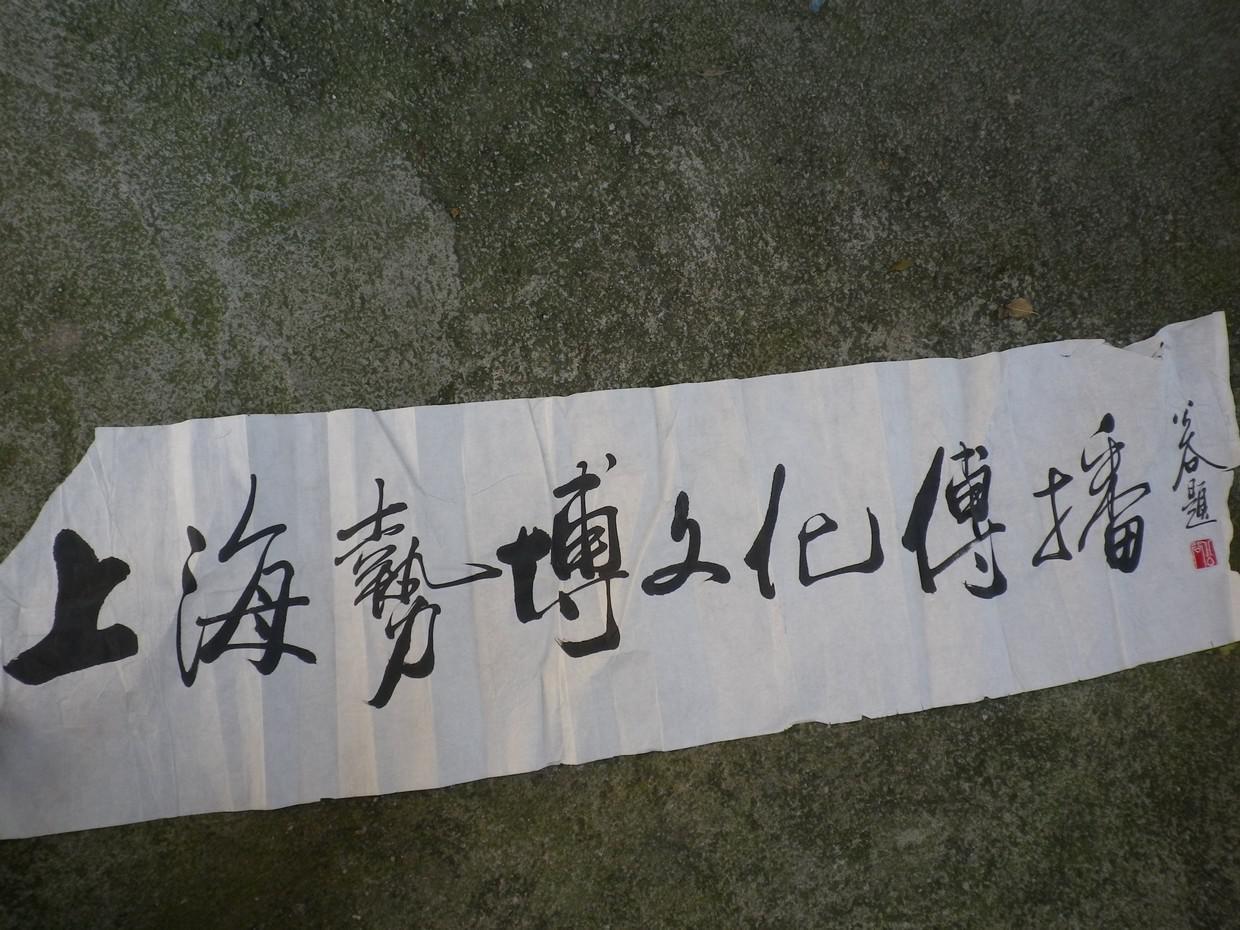 上海勢博文化傳播
題